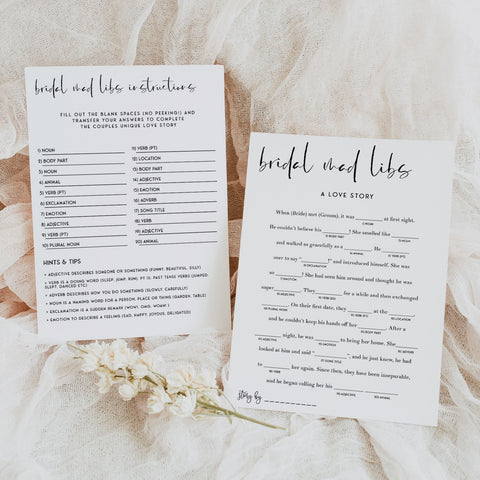 bridal mad libs instructions
FILL OUT THE BLANK SPACES (NO PEEKING!) AND
TRANSFER YOUR ANSWERS TO COMPLETE
THE COUPLES UNIQUE LOVE STORY
1) NOUN
2) BODY PART
3) NOUN
4) ANIMAL
5) VERB (PT)
6) EXCLAMATION
7) EMOTION
8) ADJECTIVE
9) VERB (PT)
10) PLURAL NOUN
11) VERB (PT)
12) LOCATION
13) BODY PART
14) ADJECTIVE
15) EMOTION
16) ADVERB
17) SONG TITLE
18) VERB
19) ADJECTIVE
20) ANIMAL
HINTS & TIPS
• ADJECTIVE DESCRIBES SOMEONE OR SOMETHING (FUNNY, BEAUTIFUL, SILLY)
• VERB IS A DOING WORD (SLEEP, JUMP, RUN) PT IS PAST TENSE VERBS (JUMPED,
SLEPT, DANCED ETC)
• ADVERB DESCRIBES HOW YOU DO SOMETHING (SLOWLY, CAREFULLY)
• NOUN IS A NAMING WORD FOR A PERSON, PLACE OR THING (GARDEN, TABLE)
• EXCLAMATION IS A SUDDEN REMARK (WOW!, OMG, WOAH! )
• EMOTION TO DESCRIBE A FEELING (SAD, HAPPY, JOYOUS, DELIGHTED)
bridal mad libs
A LOVE STORY
When (Bride) met (Groom), it was ________ at first sight.
1) NOUN
He couldn't believe his ________! She smelled like ________
2) BODY PART 3) NOUN
and walked as gracefully as a ________. He ________
4) ANIMAL 5) VERB (PT)
over to say "________!" and introduced himself. She was
6) EXCLAMATION
so ________! She had seen him around and thought he was
7) EMOTION
super ________! They ________ for a while and then exchanged
8) ADJECTIVE 9) VERB (PT)
________. On their first date, they ________ at the ________
10) PLURAL NOUN 11) VERB (PT) 12) LOCATION
and he couldn't keep his hands off her ________. After a
13) BODY PART
________ night, he was ________ to bring her home. She ________
14) ADJECTIVE 15) EMOTION 16) ADVERB
looked at him and said "________", and he just knew, he had
17) SONG TITLE
to ________ her again. Since then, they have been inseparable,
18) VERB
and he began calling her his ________ ________.
19) ADJECTIVE 20) ANIMAL
story by